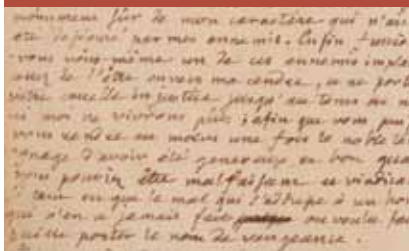 monument sûr de mon caractère qui n'ait
été défiguré par mes ennemis. Enfin fussiez
-vous vous-même un de ces ennemis impla
cessez de l'être envers ma cendre, et ne port
votre cruelle injustice jusqu'au tems où n
ni moi ne vivrons plus; afin que vous pui
vous rendre au moins une fois le noble té
-gnage d'avoir été généreux et bon quan
vous pouviez être malfaisant et vindica
si tant est que le mal qui s'addresse à un ho
qui n'en a jamais fait ou voulu fai
puisse porter le nom de vengeance.